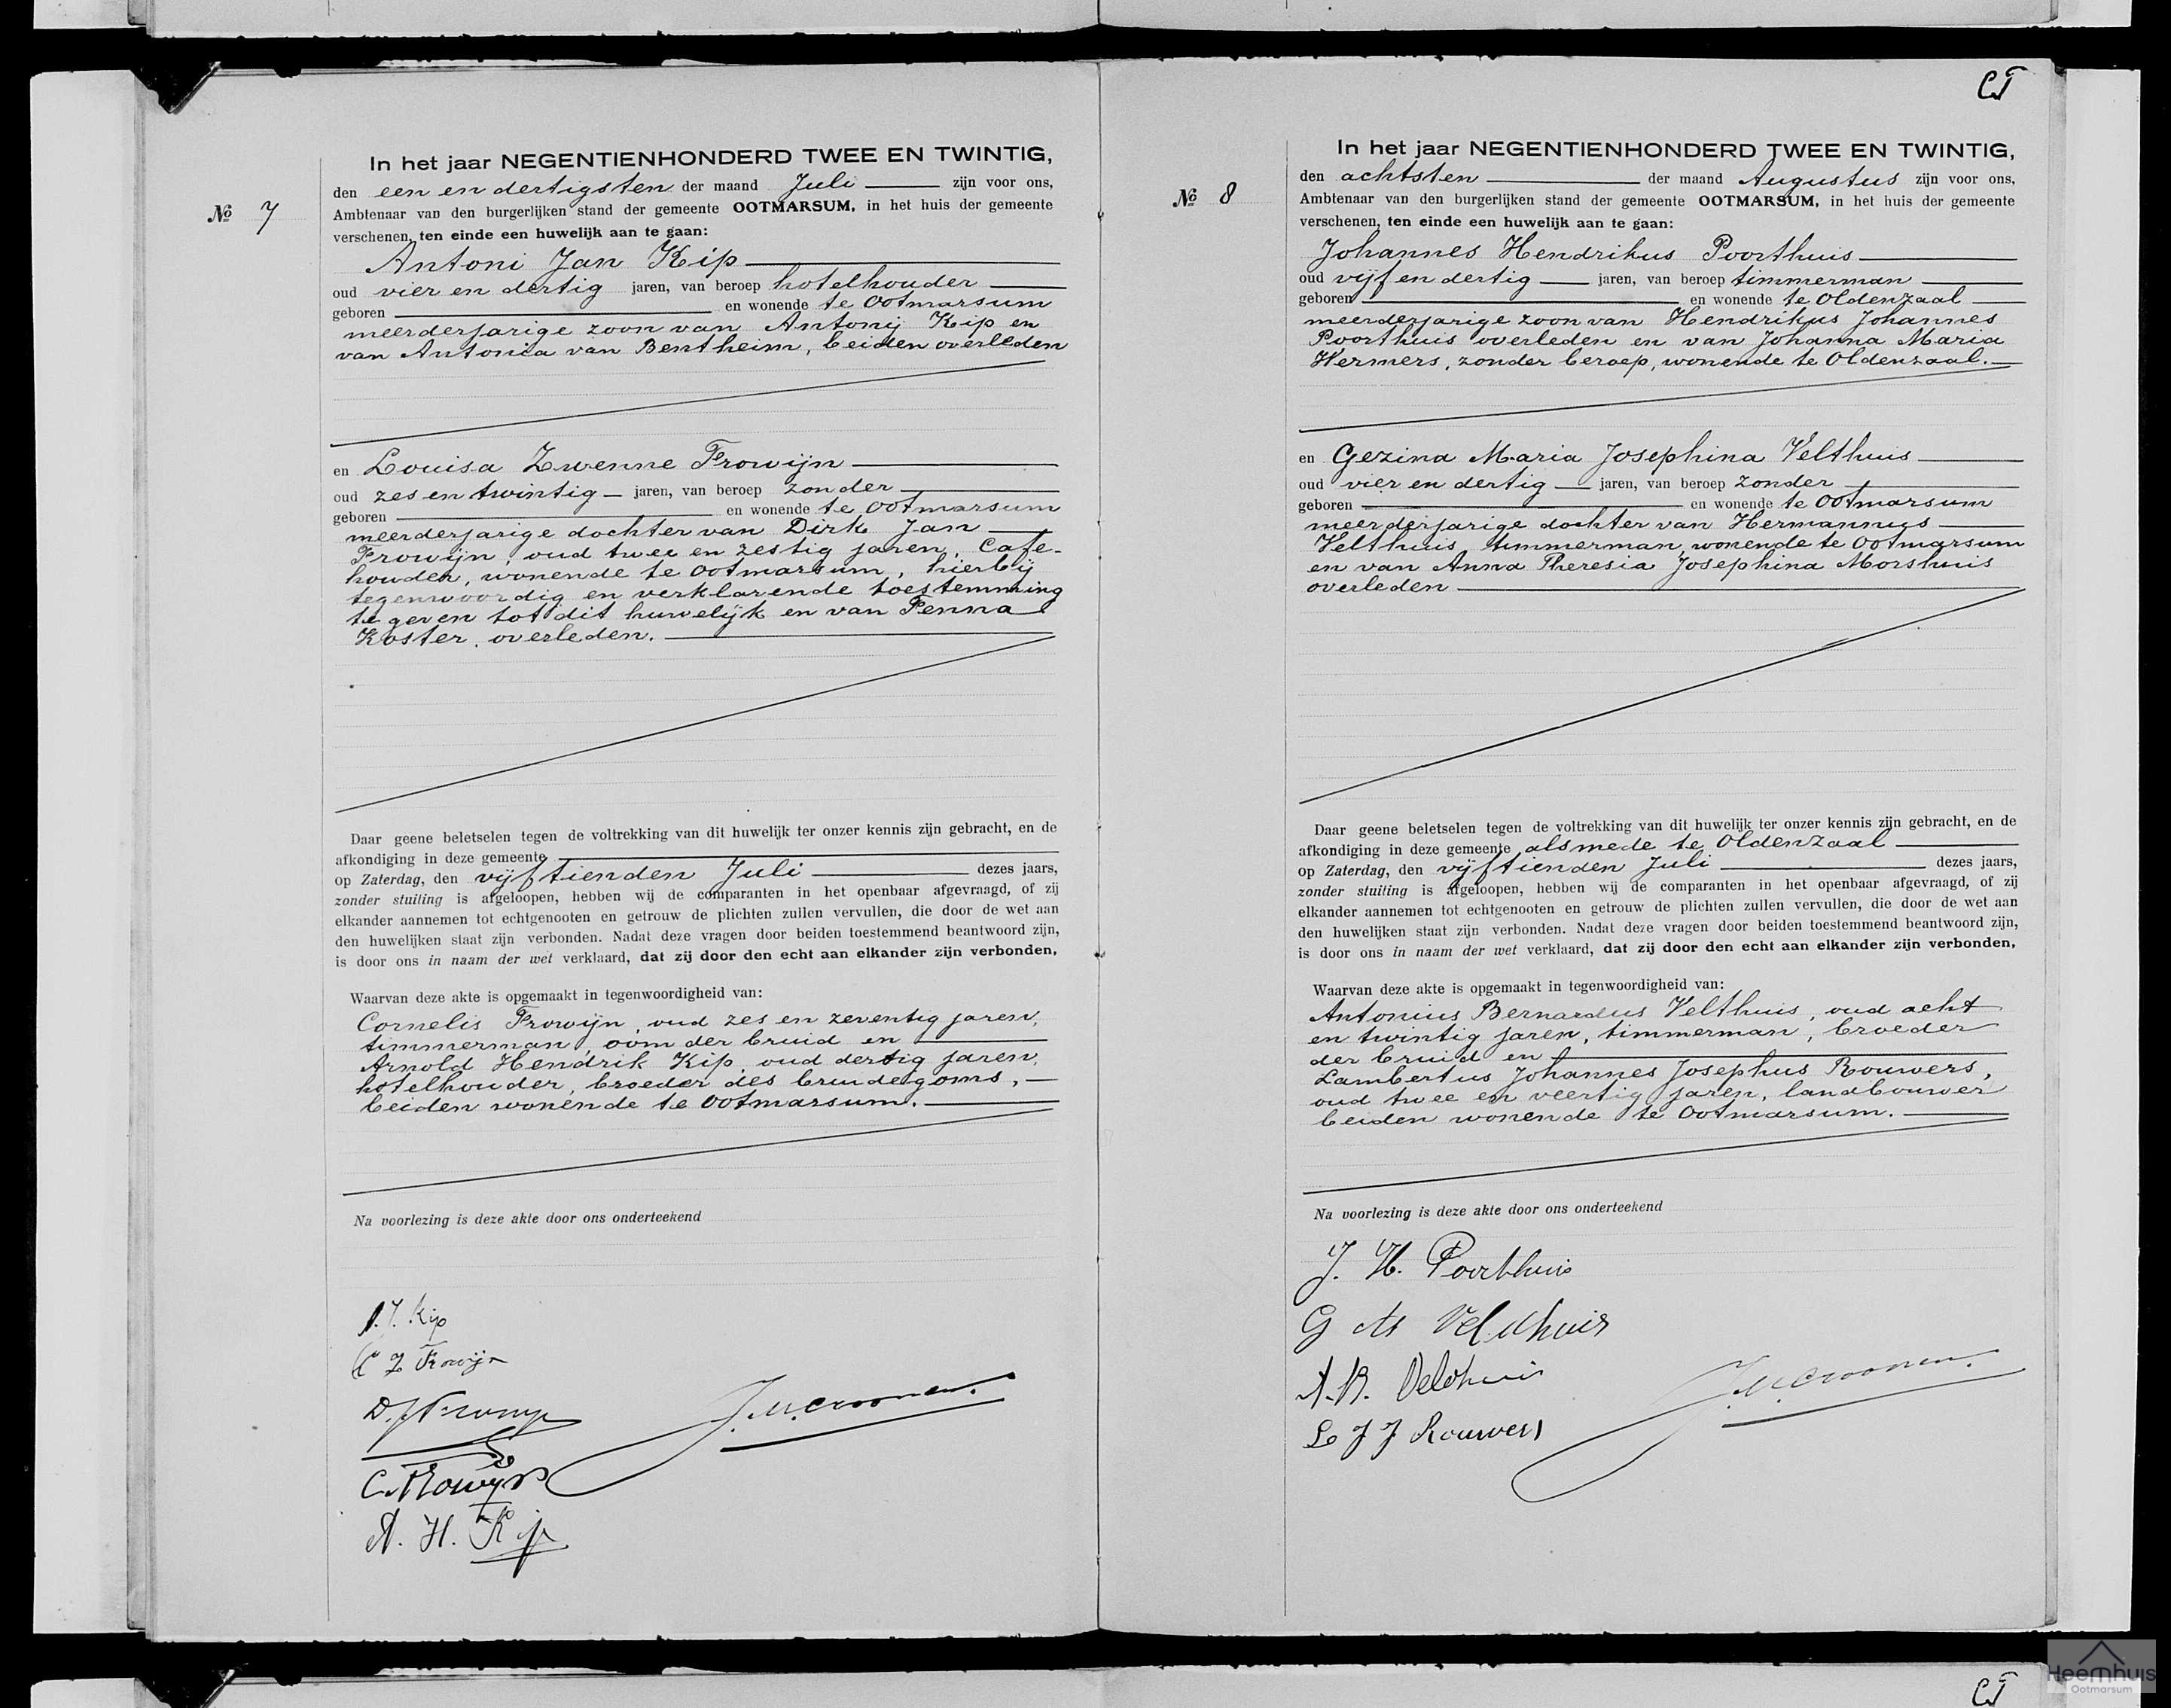 In het jaar NEGENTIENHONDERD TWEE EN TWINTIG,
den een en dertigsten der maand Juli zijn voor ons,
No 7
Ambtenaar van den burgerlijken stand der gemeente OOTMARSUM, in het huis der gemeente
verschenen, ten einde een huwelijk aan te gaan:
Antoni Jan Kip
oud vier en dertig jaren, van beroep hotelhouder
geboren en wonende te Ootmarsum
meerderjarige zoon van Antonij Kip en
van Antonia van Bentheim, beiden overleden
en Louisa Zwenne Frowijn
oud zes en twintig jaren, van beroep zonder
geboren en wonende te Ootmarsum
meerderjarige dochter van Dirk Jan
Frowijn, oud twee en zestig jaren, Cafe-
houder, wonende te Ootmarsum, hierbij
tegenwoordig en verklarende toestemming
te geven tot dit huwelijk en van Fenna
Koster, overleden.
Daar geene beletselen tegen de voltrekking van dit huwelijk ter onzer kennis zijn gebracht, en de
afkondiging in deze gemeente
op Zaterdag, den vijftienden Juli dezes jaars,
zonder stuiting is afgeloopen, hebben wij de comparanten in het openbaar afgevraagd, of zij
elkander aannemen tot echtgenooten en getrouw de plichten zullen vervullen, die door de wet aan
den huwelijken staat zijn verbonden. Nadat deze vragen door beiden toestemmend beantwoord zijn,
is door ons in naam der wet verklaard, dat zij door den echt aan elkander zijn verbonden,
Waarvan deze akte is opgemaakt in tegenwoordigheid van:
Cornelis Frowijn, oud zes en zeventig jaren,
timmerman, oom der bruid en
Arnold Hendrik Kip, oud dertig jaren,
hotelhouder, broeder des bruidegoms,
beiden wonende te Ootmarsum.
Na voorlezing is deze akte door ons onderteekend
A.J. Kip
L Z Frowijn
D.J. Frowijn
C. Frowijn
A. H. Kip
CJ
In het jaar NEGENTIENHONDERD TWEE EN TWINTIG,
den achtsten der maand Augustus zijn voor ons,
No 8
Ambtenaar van den burgerlijken stand der gemeente OOTMARSUM, in het huis der gemeente
verschenen, ten einde een huwelijk aan te gaan:
Johannes Hendrikus Poorthuis
oud vijf en dertig jaren, van beroep timmerman
geboren en wonende te Oldenzaal
meerderjarige zoon van Hendrikus Johannes
Poorthuis overleden en van Johanna Maria
Hermers, zonder beroep, wonende te Oldenzaal.
en Gezina Maria Josephina Velthuis
oud vier en dertig jaren, van beroep zonder
geboren en wonende te Ootmarsum
meerderjarige dochter van Hermannus
Velthuis, timmerman, wonende te Ootmarsum
en van Anna Theresia Josephina Morshuis
overleden
Daar geene beletselen tegen de voltrekking van dit huwelijk ter onzer kennis zijn gebracht, en de
afkondiging in deze gemeente alsmede te Oldenzaal
op Zaterdag, den vijftienden Juli dezes jaars,
zonder stuiting is afgeloopen, hebben wij de comparanten in het openbaar afgevraagd, of zij
elkander aannemen tot echtgenooten en getrouw de plichten zullen vervullen, die door de wet aan
den huwelijken staat zijn verbonden. Nadat deze vragen door beiden toestemmend beantwoord zijn,
is door ons in naam der wet verklaard, dat zij door den echt aan elkander zijn verbonden,
Waarvan deze akte is opgemaakt in tegenwoordigheid van:
Antonius Bernardus Velthuis, oud acht
en twintig jaren, timmerman, broeder
der bruid en
Lambertus Johannes Josephus Rouwers,
oud twee en veertig jaren, landbouwer
beiden wonende te Ootmarsum.
Na voorlezing is deze akte door ons onderteekend
J. H. Poorthuis
G M Veldhuis
A.B. Veldhuis
L J J Rouwers
Heemhuis
Ootmarsum
CJ